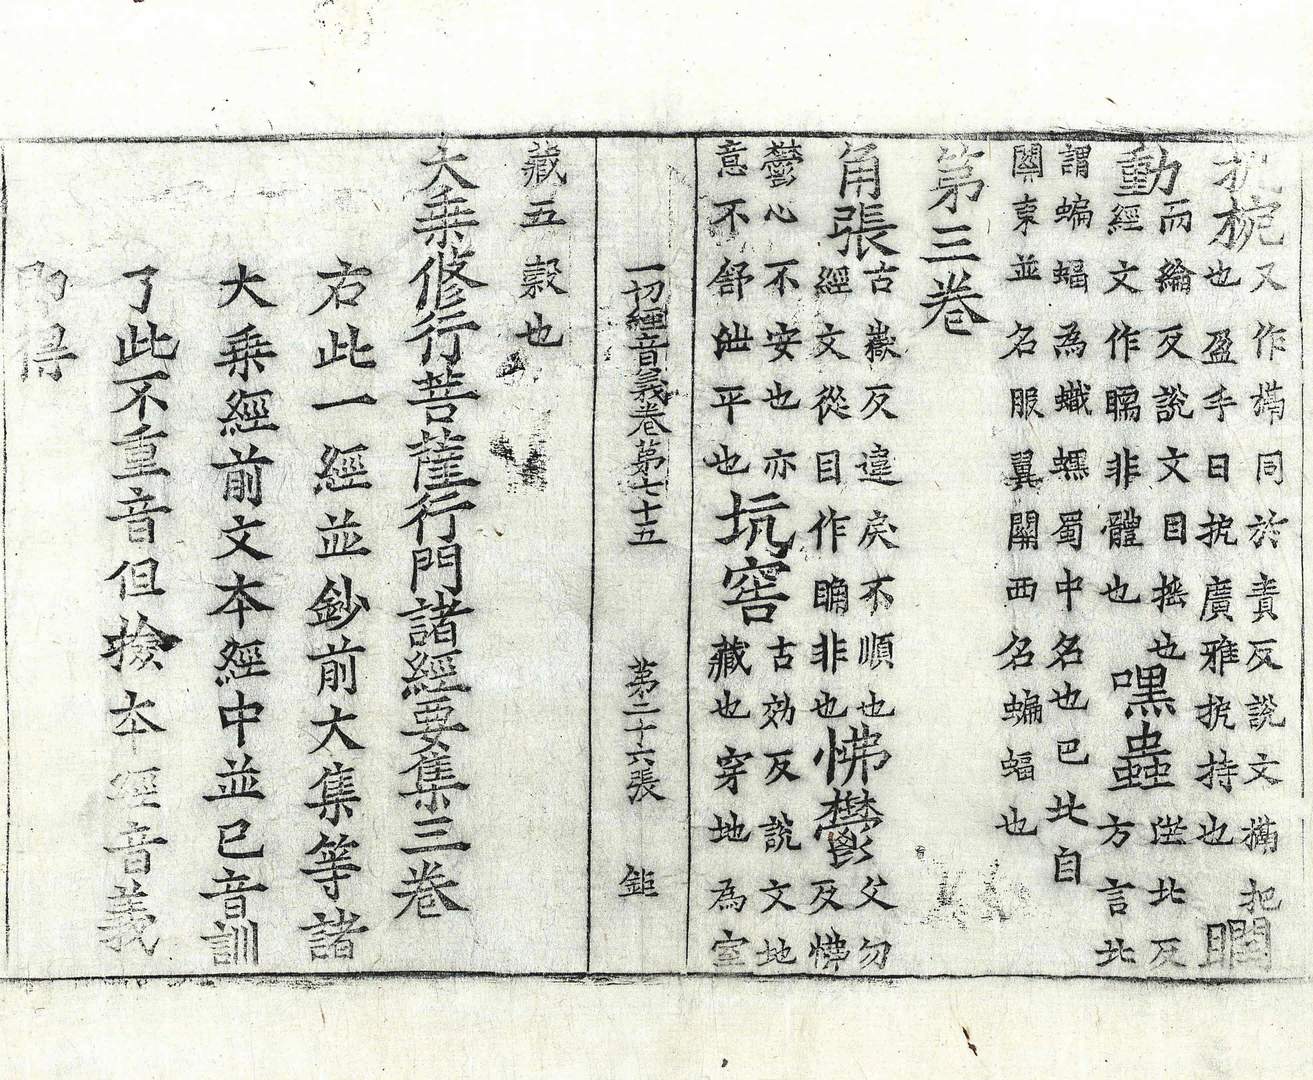 扼椀又作㨶同於責反說文㨶把
也盈手曰扼廣雅扼持也瞤
動而綸反說文目搖也
經文作𥆧非體也嘿蟲洪北反
方言北
謂蝙蝠為蟙䘃蜀中名也巴北自
關東並名服翼關西名蝙蝠也
第三卷
角張古嶽反違戾不順也
經文從目作𥆧非也怫鬱父勿
反怫
鬱心不安也亦
意不舒泄平也坑窖古効反說文地
藏也穿地為室
一切經音義卷第七十五 第二十六張 鉅
藏五穀也
大乗修行菩薩行門諸經要集三卷
右此一經並鈔前大集等諸
大乗經前文本經中並已音訓
了此不重音但撿本經音義
即得